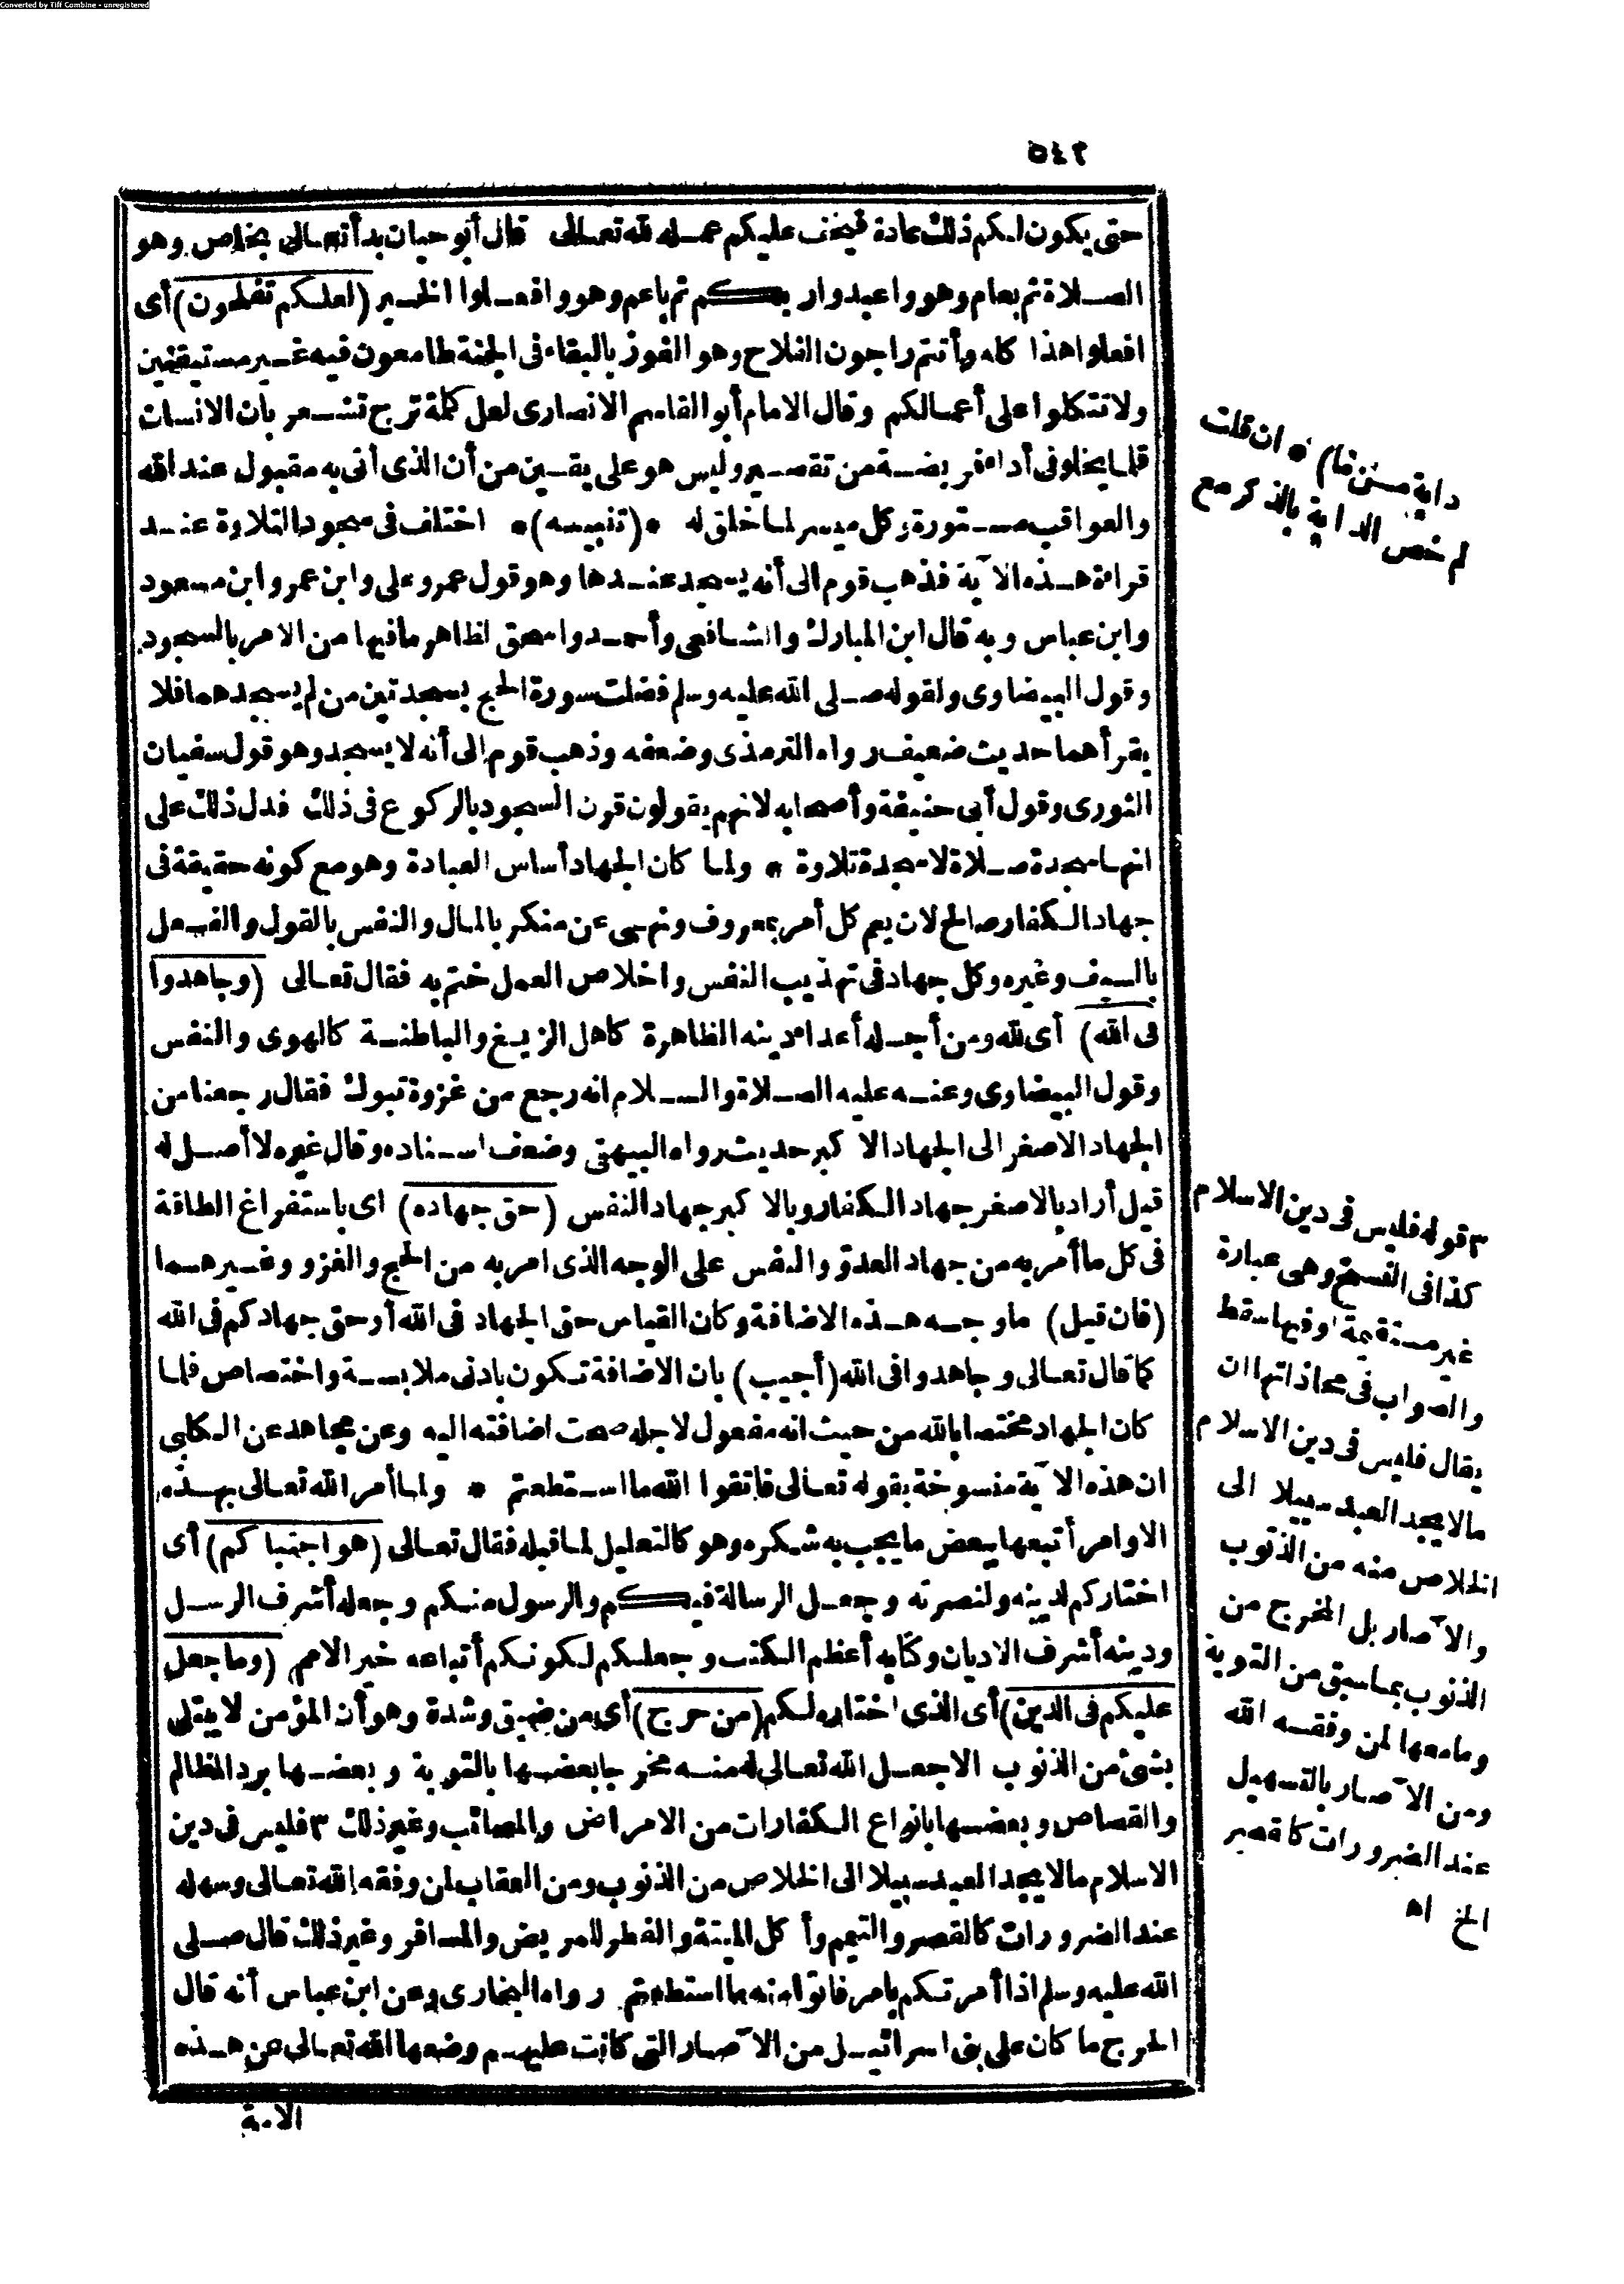 Converted by Tiff Combine - unregistered
٥٤٢
حتى يكون لكم ذلك عادة فيخف عليكم عمله لله تعالى قال أبو حيان بدأ تعالى بخاص وهو
الصلاة ثم بعام وهو واعبدوا ربكم ثم باعم وهو وافعلوا الخير (لعلكم تفلحون) أى
افعلوا هذا كله وأنتم راجون الفلاح وهو الفوز بالبقاء فى الجنة طامعون فيه غير مستيقنين
ولا تتكلوا على أعمالكم وقال الامام أبو القاسم الانصارى لعل كلمة ترج تشعر بان الانسان
قلما يخلو فى أداء فريضة من تقصير وليس هو على يقين من أن الذى أتى به مقبول عند الله
والعواقب مستورة وكل ميسر لما خلق له * (تنبيه) * اختلف فى سجود التلاوة عند
قراءة هذه الآية فذهب قوم الى أنه يسجد عندها وهو قول عمر وعلى وابن عمر وابن مسعود
وابن عباس وبه قال ابن المبارك والشافعى وأحمد واسحق لظاهر ما فيها من الامر بالسجود
وقول البيضاوى ولقوله صلى الله عليه وسلم فضلت سورة الحج بسجدتين من لم يسجدهما فلا
يقرأهما حديث ضعيف رواه الترمذى وضعفه وذهب قوم الى أنه لا يسجد وهو قول سفيان
الثورى وقول أبى حنيفة وأصحابه لانهم يقولون قرن السجود بالركوع فى ذلك فدل ذلك على
انها سجدة صلاة لا سجدة تلاوة * ولما كان الجهاد أساس العبادة وهو مع كونه حقيقة فى
جهاد الكفار صالح لان يعم كل أمر بمعروف ونهى عن منكر بالمال والنفس بالقول والفعل
بالسيف وغيره وكل جهاد فى تهذيب النفس واخلاص العمل ختم به فقال تعالى (وجاهدوا
فى الله) أى لله ومن أجله أعداء دينه الظاهرة كاهل الزيغ والباطنة كالهوى والنفس
وقول البيضاوى وعنه عليه الصلاة والسلام انه رجع من غزوة تبوك فقال رجعنا من
الجهاد الاصغر الى الجهاد الاكبر حديث رواه البيهقى وضعف اسناده وقال غيره لا أصل له
قيل أراد بالاصغر جهاد الكفار وبالاكبر جهاد النفس (حق جهاده) اى باستفراغ الطاقة
فى كل ما أمر به من جهاد العدوّ والنفس على الوجه الذى امر به من الحج والغزو وغيرهما
(فان قيل) ما وجه هذه الاضافة وكان القياس حق الجهاد فى الله أو حق جهادكم فى الله
كما قال تعالى وجاهدوا فى الله (أجيب) بان الاضافة تكون بادنى ملابسة واختصاص فلما
كان الجهاد مختصا بالله من حيث انه مفعول لاجله صحت اضافته اليه وعن مجاهد عن الكلبى
ان هذه الآية منسوخة بقوله تعالى فاتقوا الله ما استطعتم * ولما أمر الله تعالى بهذه
الاوامر أتبعها ببعض ما يجب به شكره وهو كالتعليل لما قبله فقال تعالى (هو اجتباكم) أى
اختاركم لدينه ولنصرته وجعل الرسالة فيكم والرسول منكم وجعله أشرف الرسل
ودينه أشرف الاديان وكتابه أعظم الكتب وجعلكم لكونكم أتباعه خير الامم (وما جعل
عليكم فى الدين) أى الذى اختاره لكم (من حرج) أى من ضيق وشدة وهو أن المؤمن لا يبتلى
بشئ من الذنوب الا جعل الله تعالى له منه مخرجا بعضها بالتوبة وبعضها برد المظالم
والقصاص وبعضها بانواع الكفارات من الامراض والمصائب وغير ذلك ٣ فليس فى دين
الاسلام ما لا يجد العبد سبيلا الى الخلاص من الذنوب ومن العقاب لمن وفقه الله تعالى وسهله
عند الضرورات كالقصر والتيمم وأكل الميتة والفطر للمريض والمسافر وغير ذلك قال صلى
الله عليه وسلم اذا أمرتكم بامر فاتوا منه ما استطعتم رواه البخارى وعن ابن عباس أنه قال
الحرج ما كان على بنى اسرائيل من الآصار التى كانت عليهم وضعها الله تعالى عن هذه
الامة
ان قلت
لم خص الداية بالذكر مع
٣ قوله فليس فى دين الاسلام
كذا فى النسخ وهى عبارة
غير مستقيمة او فيها سقط
والصواب فى محاذاتها ان
يقال فليس فى دين الاسلام
ما لا يجد العبد سبيلا الى
الخلاص منه من الذنوب
والآصار بل المخرج من
الذنوب بما سبق من التوبة
وما معها لمن وفقه الله
ومن الآصار بالتسهيل
عند الضرورات كالقصر
الخ اه